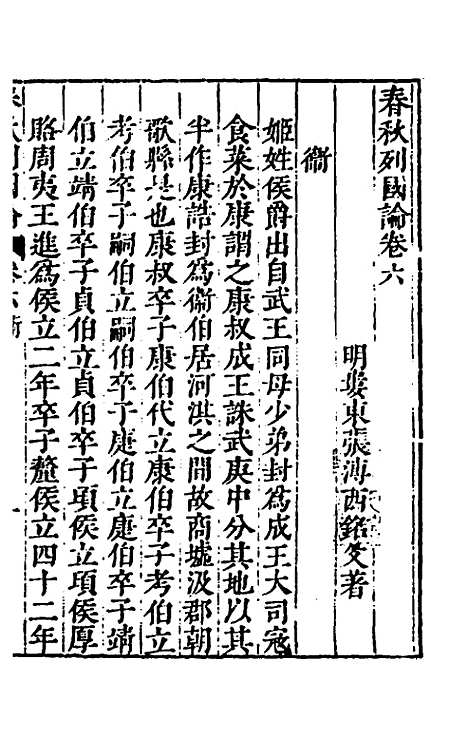 春秋列國論卷六
明婁東張溥西銘父著
衞
姬姓侯爵出自武王同母少弟封為成王大司寇
食菜於康謂之康叔成王誅武庚中分其地以其
半作康誥封為衞伯居河淇之間故商墟汲郡朝
歌縣是也康叔卒子康伯代立康伯卒子考伯立
考伯卒子嗣伯立嗣伯卒子庚伯立庚伯卒子靖
伯立靖伯卒子貞伯立貞伯卒子項侯立項侯厚
賂周夷王進為侯立二年卒子釐侯立四十二年